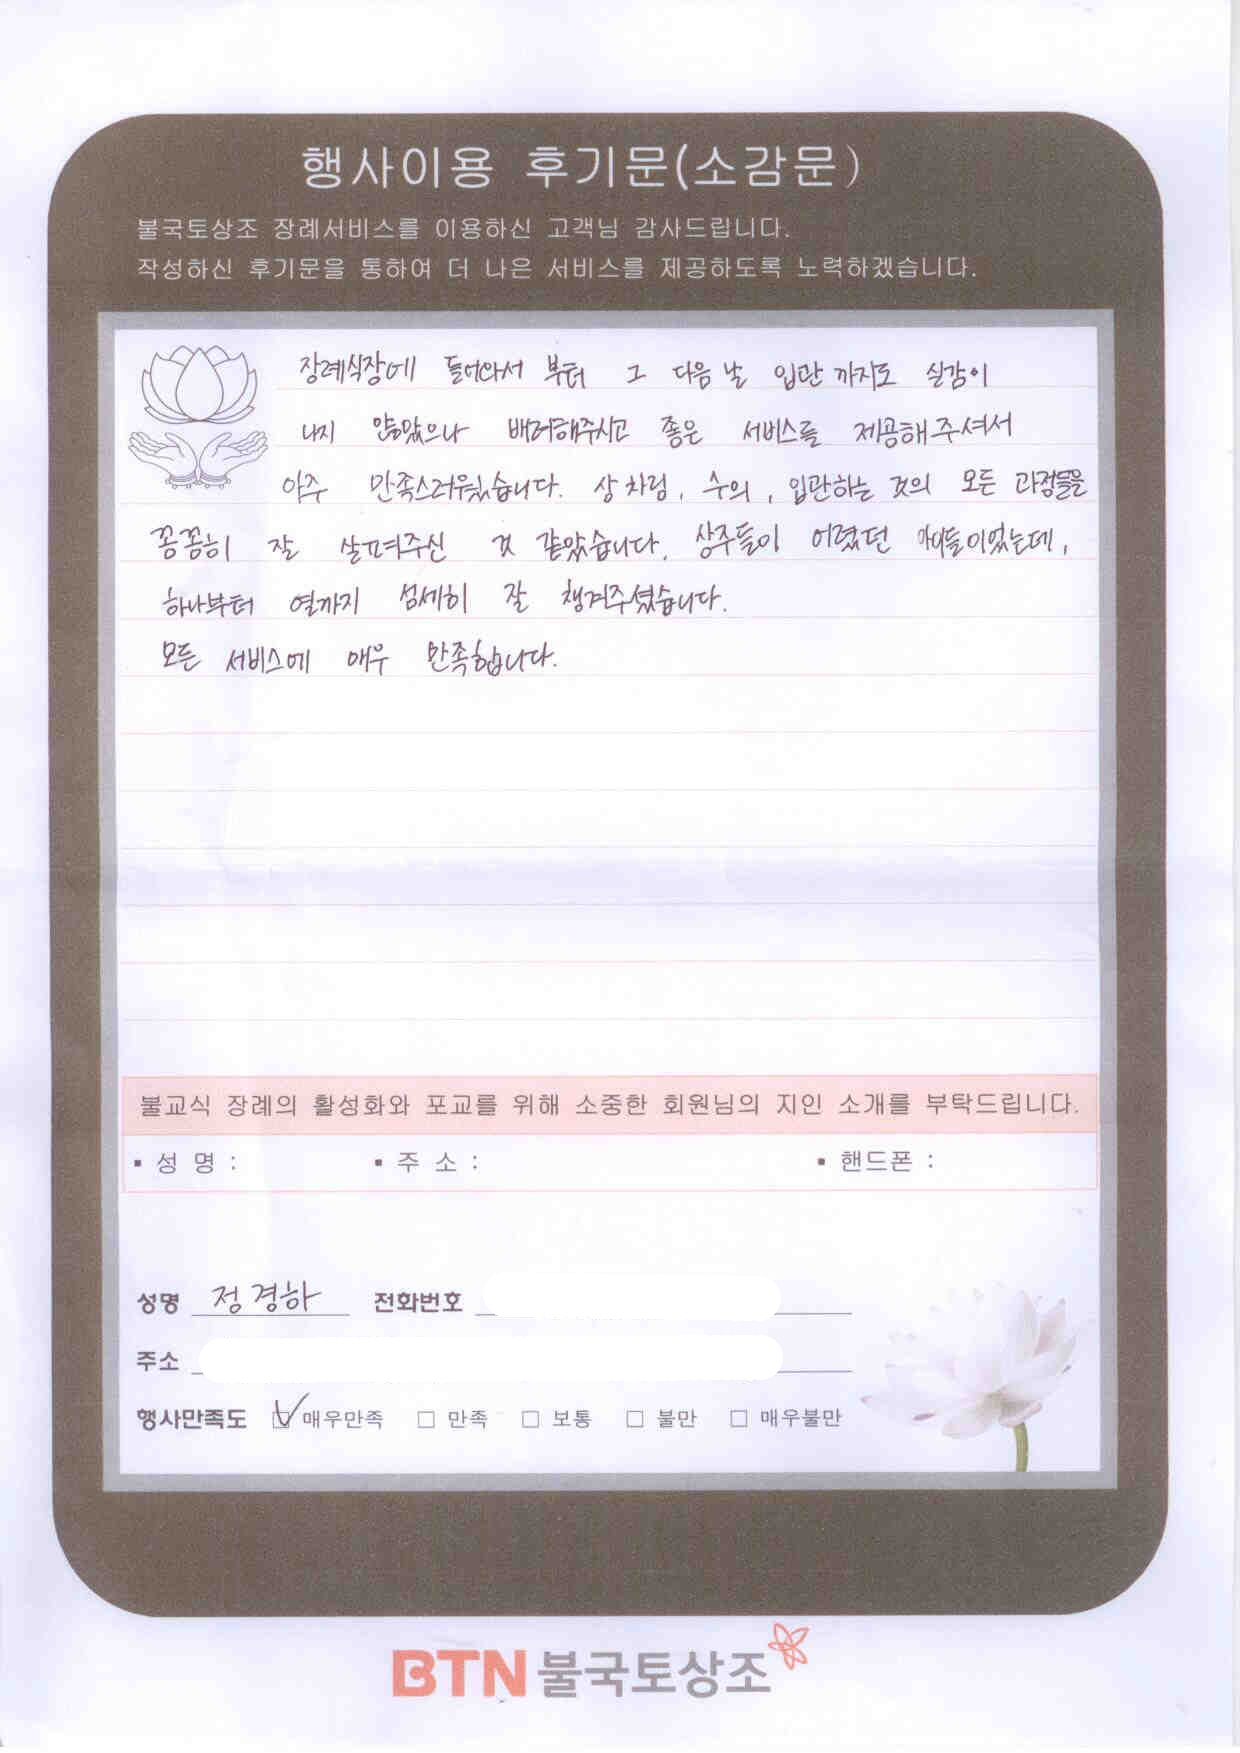 행사이용 후기문(소감문)
불국토상조 장례서비스를 이용하신 고객님 감사드립니다.
작성하신 후기문을 통하여 더 나은 서비스를 제공하도록 노력하겠습니다.
장례식장에 들어와서 부터 그 다음 날 입관 까지도 실감이
나지 않았으나 배려해주시고 좋은 서비스를 제공해주셔서
아주 만족스러웠습니다. 상 차림, 수의, 입관하는 것의 모든 과정들을
꼼꼼히 잘 살펴주신 것 같았습니다. 상주들이 어렸던 아이들이었는데,
하나부터 열까지 섬세히 잘 챙겨주셨습니다.
모든 서비스에 매우 만족합니다.
불교식 장례의 활성화와 포교를 위해 소중한 회원님의 지인 소개를 부탁드립니다.
▪ 성 명 : ▪ 주 소 : ▪ 핸드폰 :
성명 정경하 전화번호
주소
행사만족도 ☑ 매우만족 □ 만족 □ 보통 □ 불만 □ 매우불만
BTN 불국토상조